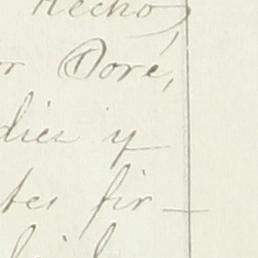 Hecho,
r Doré,
diez y
tes fir-